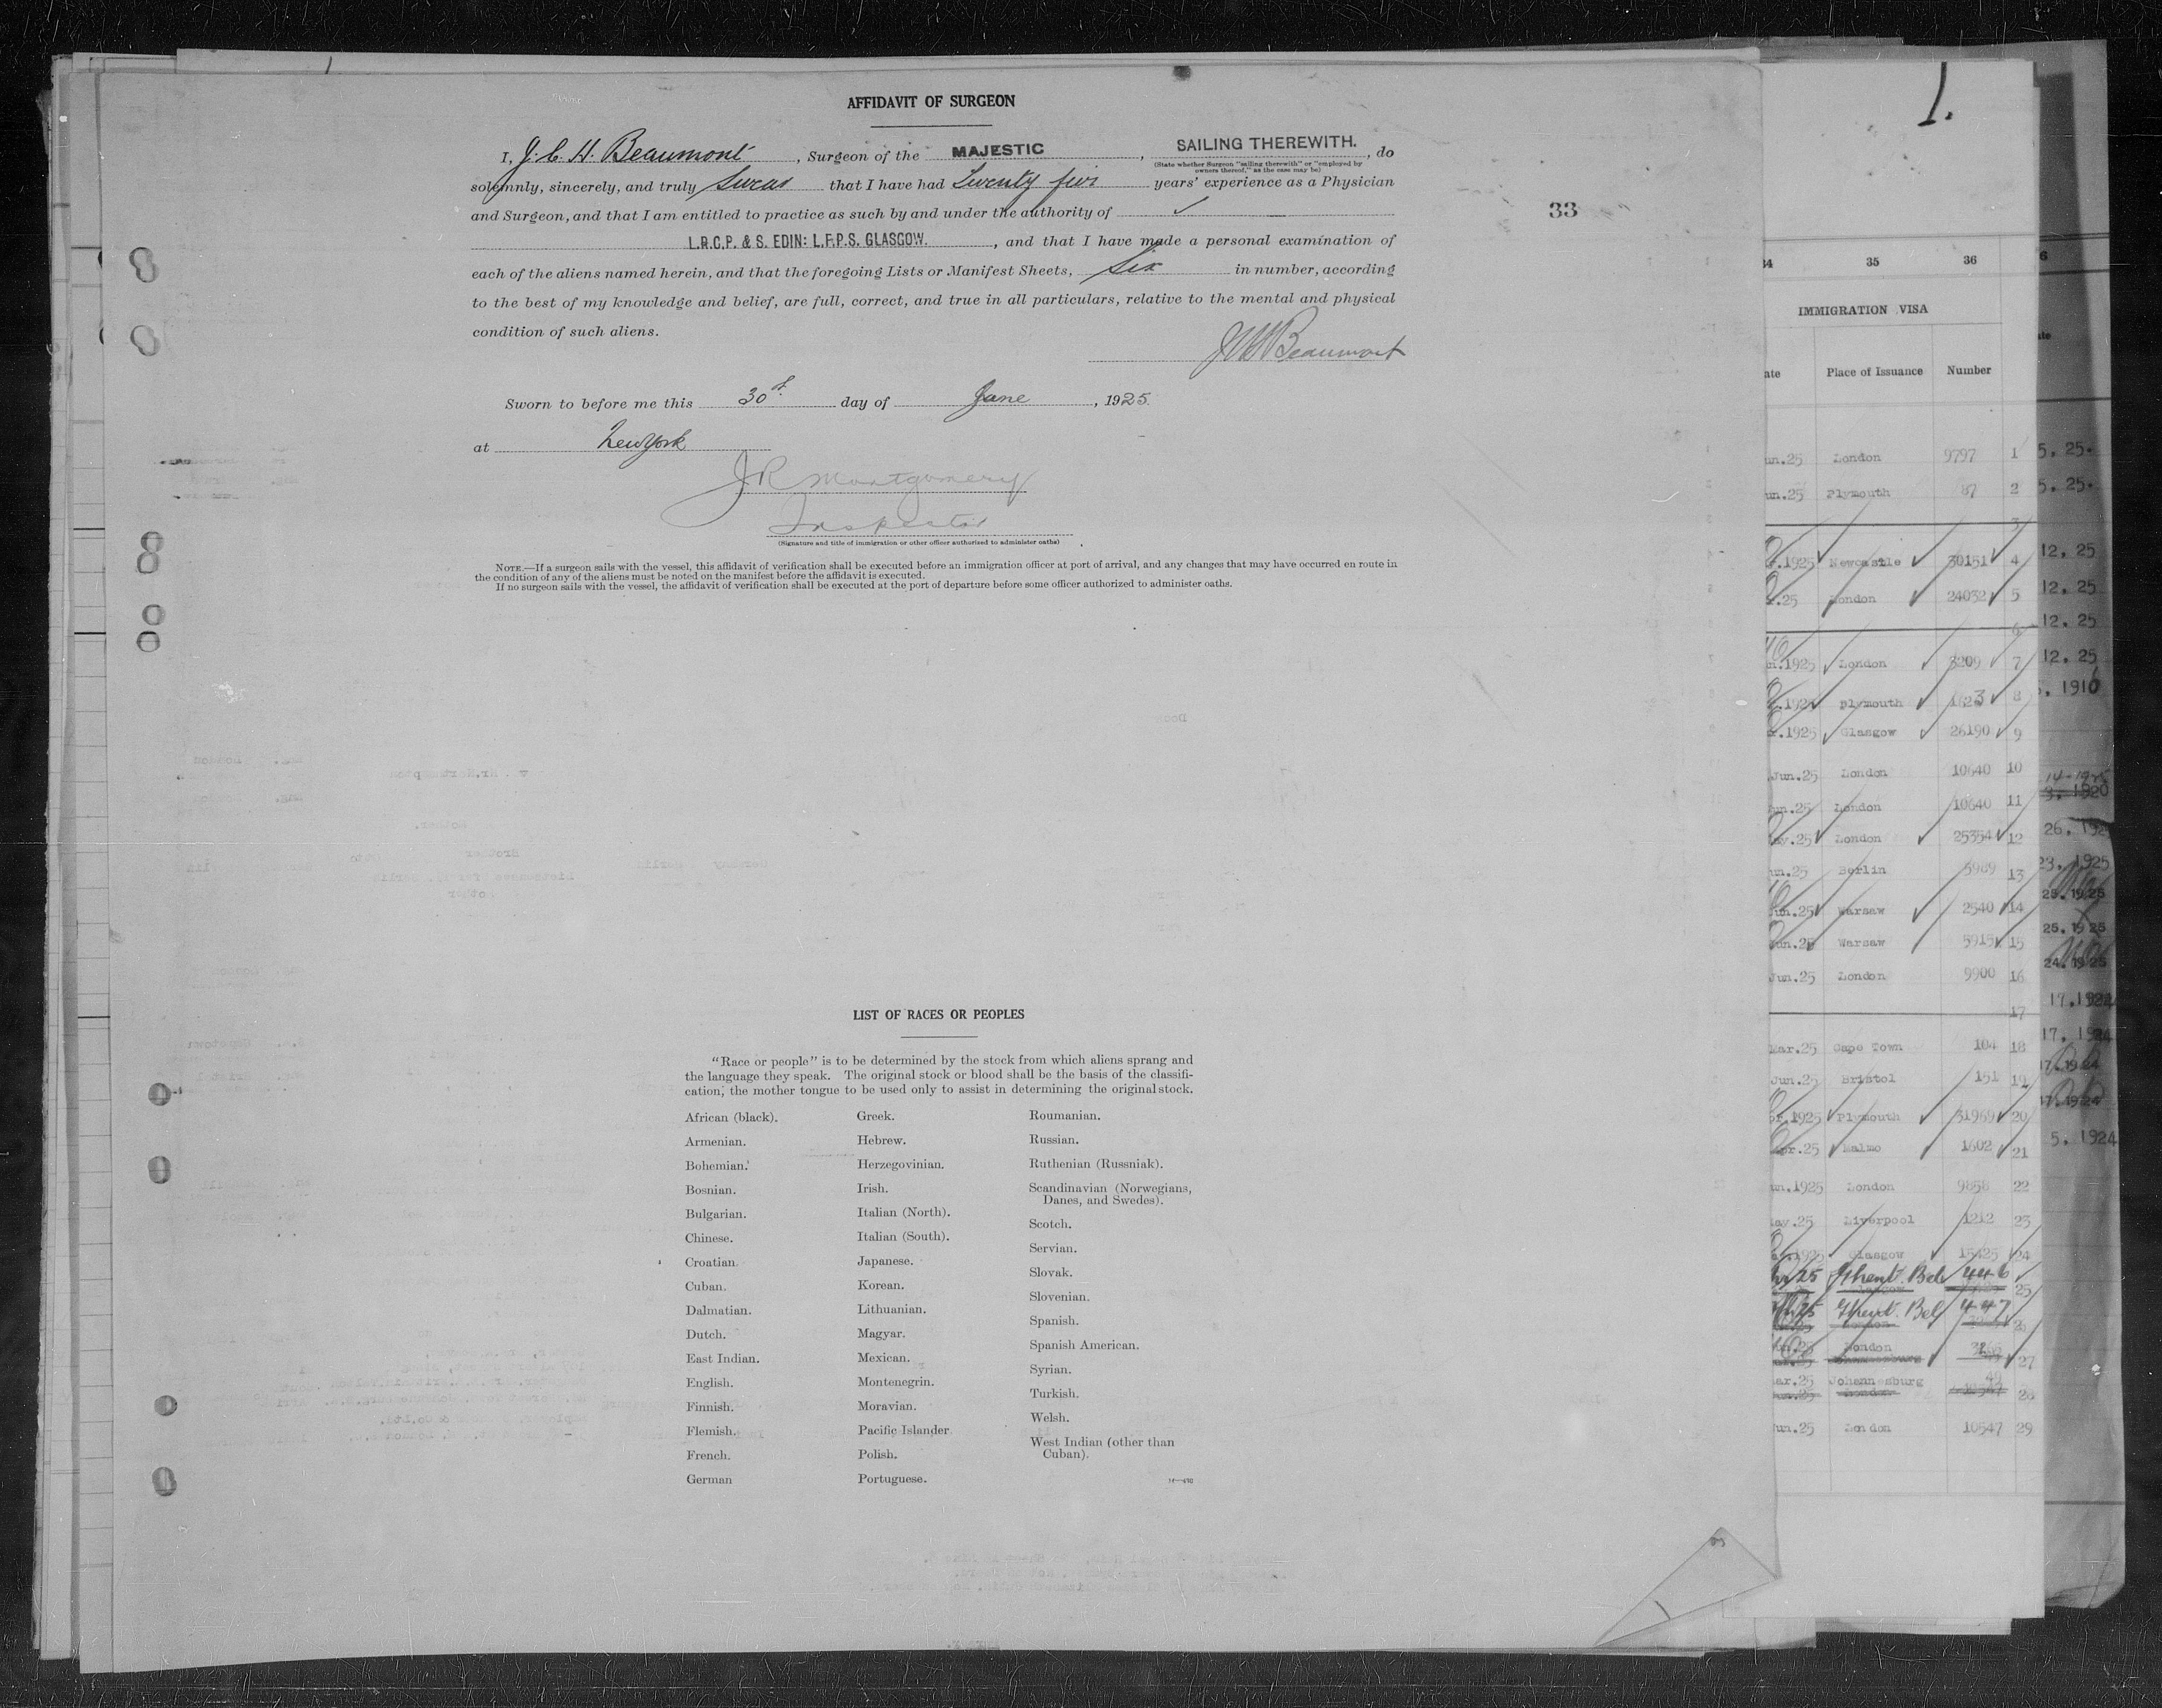 AFFIDAVIT OF SURGEON
I, J. C. H. Beaumont, Surgeon of the MAJESTIC, SAILING THEREWITH., do
(State whether Surgeon "sailing therewith" or "employed by
owners thereof," as the case may be)
solemnly, sincerely, and truly Swear that I have had Twenty five years' experience as a Physician
and Surgeon, and that I am entitled to practice as such by and under the authority of
L.R.C.P. & S. EDIN: L.F.P.S. GLASGOW., and that I have made a personal examination of
each of the aliens named herein, and that the foregoing Lists or Manifest Sheets, Six in number, according
to the best of my knowledge and belief, are full, correct, and true in all particulars, relative to the mental and physical
condition of such aliens.
JCHBeaumont
Sworn to before me this 30th day of June, 1925.
at New York
J R Montgomery
Inspector
(Signature and title of immigration or other officer authorized to administer oaths)
NOTE.—If a surgeon sails with the vessel, this affidavit of verification shall be executed before an immigration officer at port of arrival, and any changes that may have occurred en route in
the condition of any of the aliens must be noted on the manifest before the affidavit is executed.
If no surgeon sails with the vessel, the affidavit of verification shall be executed at the port of departure before some officer authorized to administer oaths.
33
LIST OF RACES OR PEOPLES
"Race or people" is to be determined by the stock from which aliens sprang and
the language they speak. The original stock or blood shall be the basis of the classifi-
cation, the mother tongue to be used only to assist in determining the original stock.
African (black).
Armenian.
Bohemian.
Bosnian.
Bulgarian.
Chinese.
Croatian.
Cuban.
Dalmatian.
Dutch.
East Indian.
English.
Finnish.
Flemish.
French.
German
Greek.
Hebrew.
Herzegovinian.
Irish.
Italian (North).
Italian (South).
Japanese.
Korean.
Lithuanian.
Magyar.
Mexican.
Montenegrin.
Moravian.
Pacific Islander
Polish.
Portuguese.
Roumanian.
Russian.
Ruthenian (Russniak).
Scandinavian (Norwegians,
Danes, and Swedes).
Scotch.
Servian.
Slovak.
Slovenian.
Spanish.
Spanish American.
Syrian.
Turkish.
Welsh.
West Indian (other than
Cuban).
1.
34 35 36
IMMIGRATION VISA
Place of Issuance Number
un.25 London 9797 1
un.25 Plymouth 87 2
3
.1925 Newcastle 30151 4
.25 London 24032 5
6
n.1925 London 3209 7
Plymouth 1623 8
.1925 Glasgow 26190 9
Jun.25 London 10640 10
un.25 London 10640 11
ay.25 London 25354 12
un.25 Berlin 5989 13
un.25 Warsaw 2540 14
un.25 Warsaw 5915 15
Jun.25 London 9900 16
17
Mar.25 Cape Town 104 18
Jun.25 Bristol 151 19
pr.1925 Plymouth 31969 20
pr.25 Malmo 1602 21
un.1925 London 9858 22
ay.25 Liverpool 1212 23
.1925 Glasgow 15425 24
25 Ghent. Bel 446 25
25 Ghent. Bel 447 26
un.25 London 27
ar.25 Johannesburg 28
un.25 London 10547 29
5. 25.
5. 25.
12. 25
12. 25
12. 25
12. 25
. 1916
14-1925
3. 1920
26. 192
23. 1925
25. 1925
25. 1925
24. 1925
17. 1924
17. 1924
17. 1924
17. 1924
5. 1924